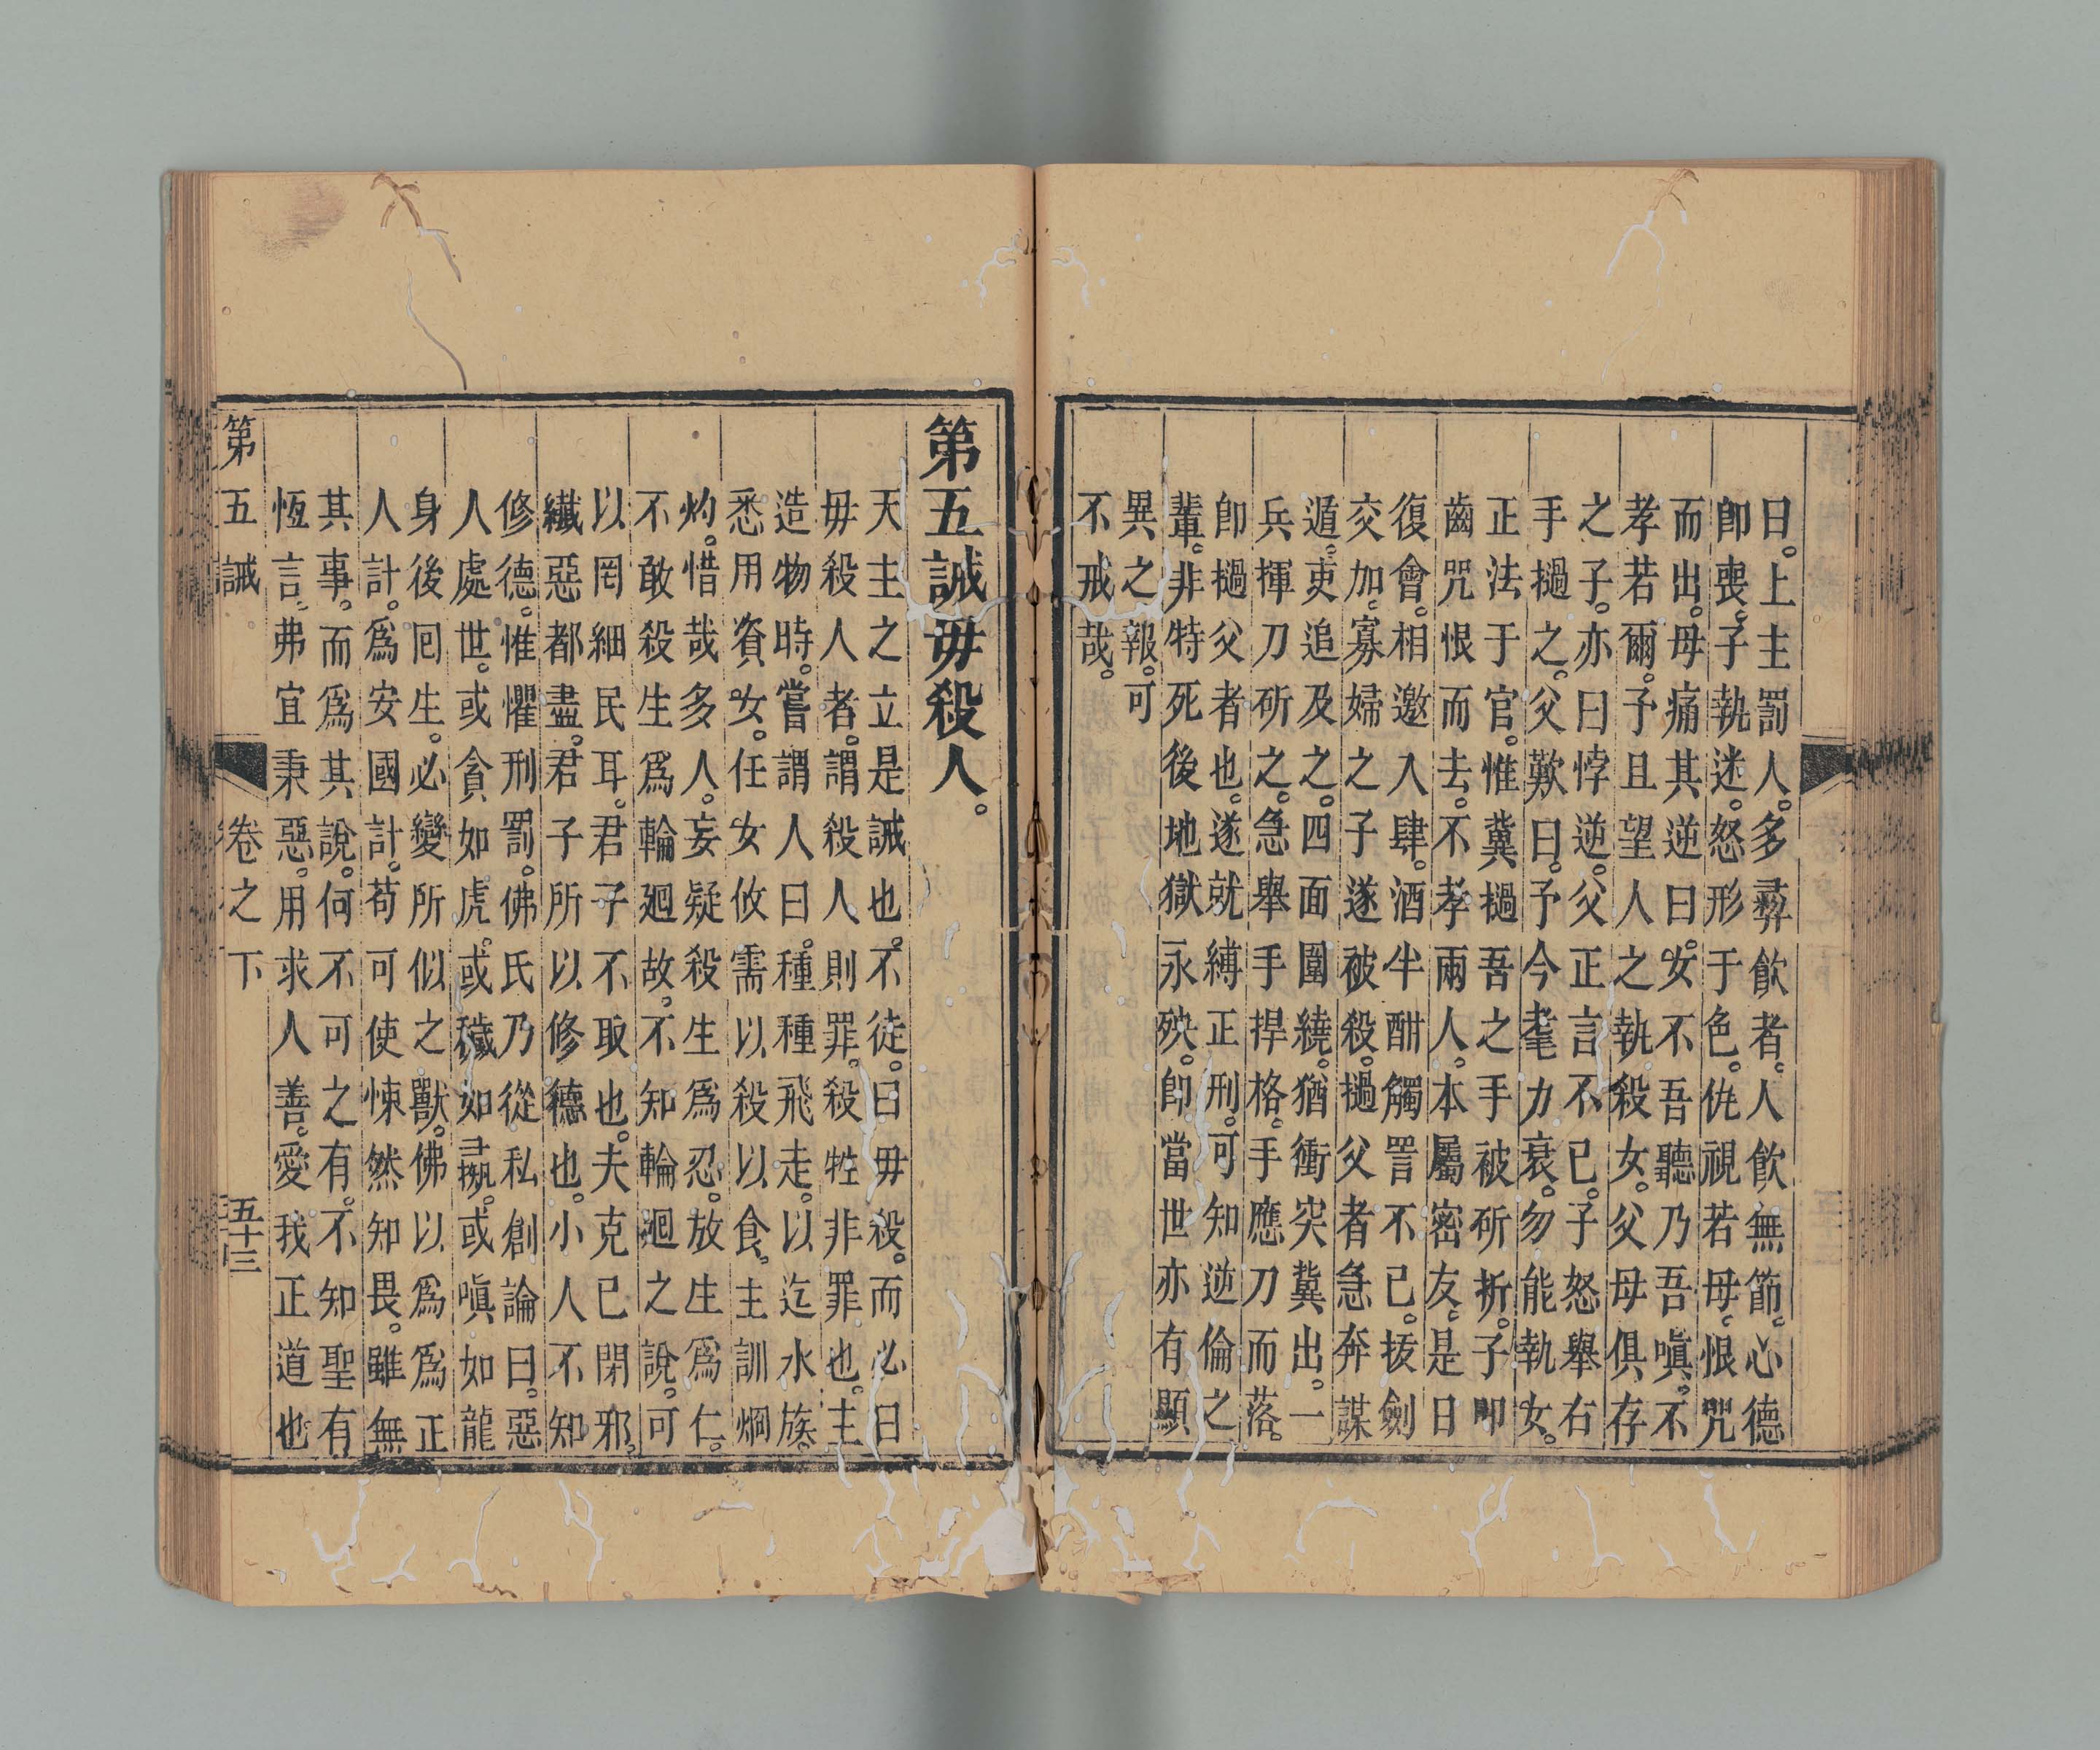 曰。上主罰人。多彞飮者。人飮無節。心德
卽喪。子執迷。怒形于色。侁視若母。恨咒
而出。母痛其逆曰。女不吾聽。乃吾嗔。不
孝若爾。予且望人之執殺女。父母俱存
之子。亦曰悖逆。父正言不已。子怒舉右
手撾之。父歎曰。予今耄力衰。勿能執女。
正法于官。惟冀撾吾之手被斫折。子叩
齒咒恨而去。不孝兩人。本屬密友。是日
復會。相邀入肆。酒半酣。觸詈不已。拔劍
交加。寡婦之子遂被殺。撾父者急奔謀
遁。吏追及之。四面圍繞。猶衝突冀出。一
兵揮刀斫之。急舉手捍格。手應刀而落。
卽撾父者也。遂就縛正刑。可知逆倫之
輩。非特死後地獄永殃。卽當世亦有顯
異之報。可
不戒哉。
第五誡毋殺人。
天主之立是誡也。不徒曰毋殺。而必曰
毋殺人者。謂殺人則罪。殺牲非罪也。主
造物時。嘗謂人曰。種種飛走。以迄水族。
悉用資女。任女攸需以殺以食。主訓烱
灼。惜哉多人。妄疑殺生爲忍。放生爲仁。
不敢殺生爲輪廻故。不知輪廻之說。可
以罔細民耳。君子不取也。夫克已閑邪。
纎惡都盡。君子所以修德也。小人不知
修德。惟懼刑罰。佛氏乃從私創論曰。惡
人處世。或貪如虎。或穢如彘。或嗔如龍
身後囘生。必變所似之獸。佛以爲爲正
人計。爲安國計。苟可使悚然知畏。雖無
其事。而爲其說。何不可之有。不知聖有
恆言。弗宜秉惡。用求人善。愛我正道也
第五誡 卷之下 五十三